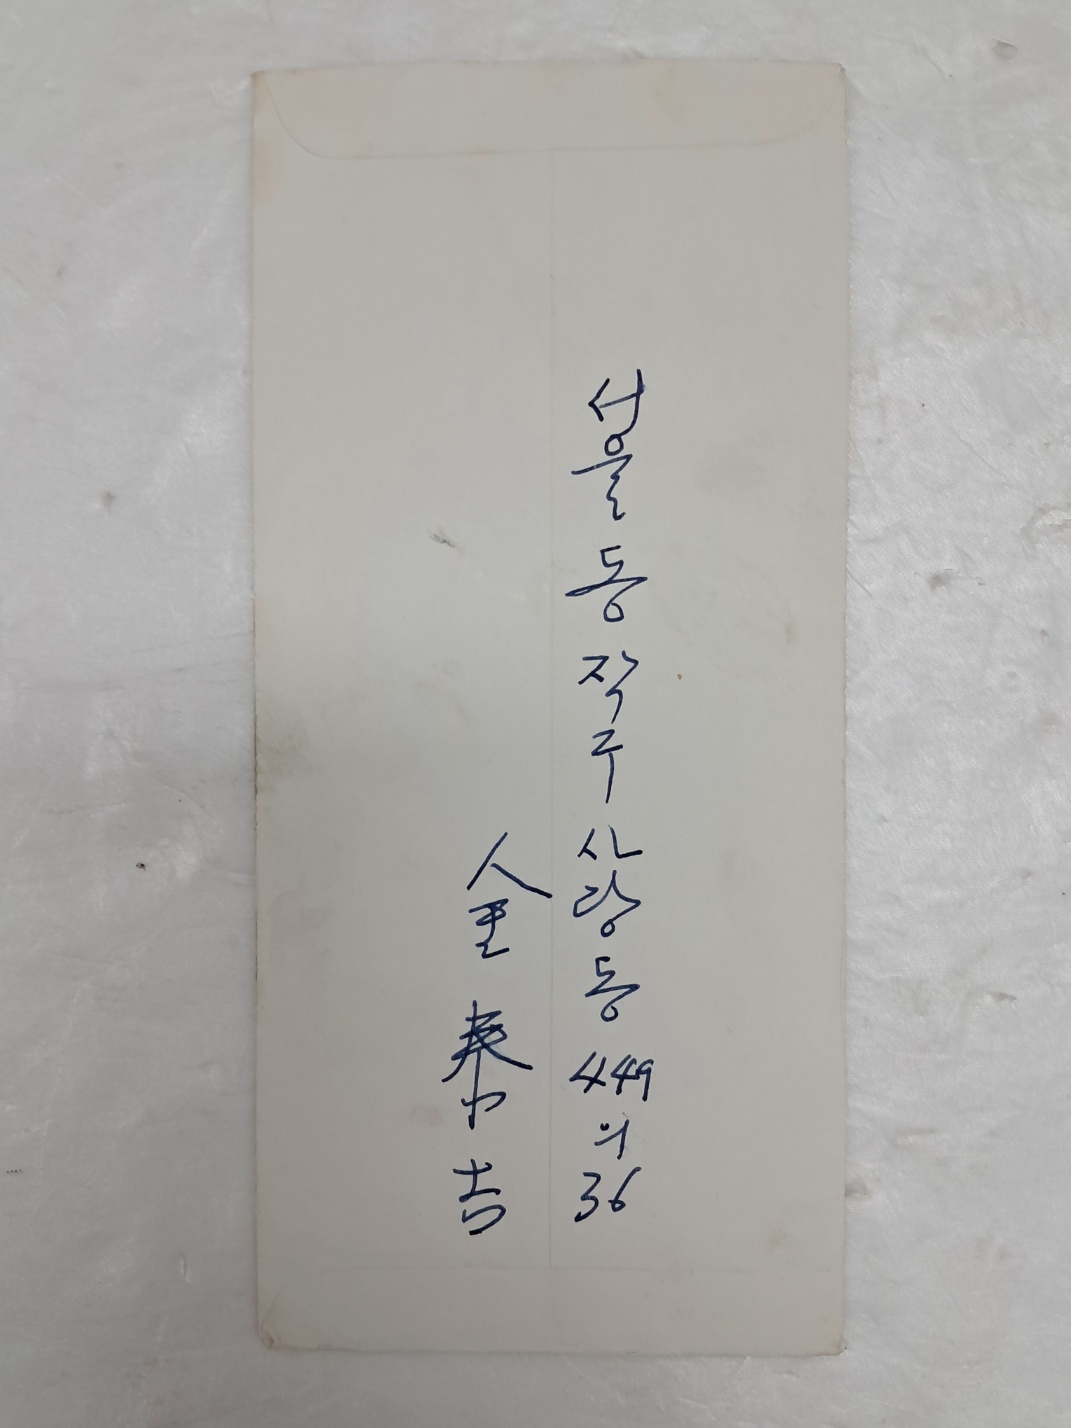 서울 동작구 사당동 449의 36
金 奉 吉